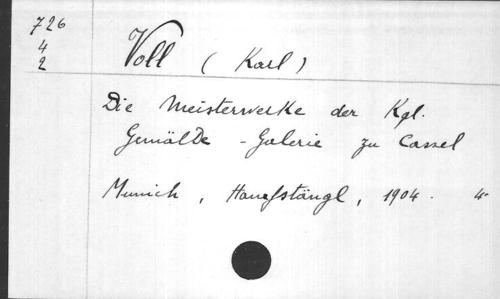 726
4
2
Voll (Karl)
Die Meisterwerke der Kgl.
Gemälde-Galerie zu Cassel
Munich, Hanfstängl, 1904. 4°